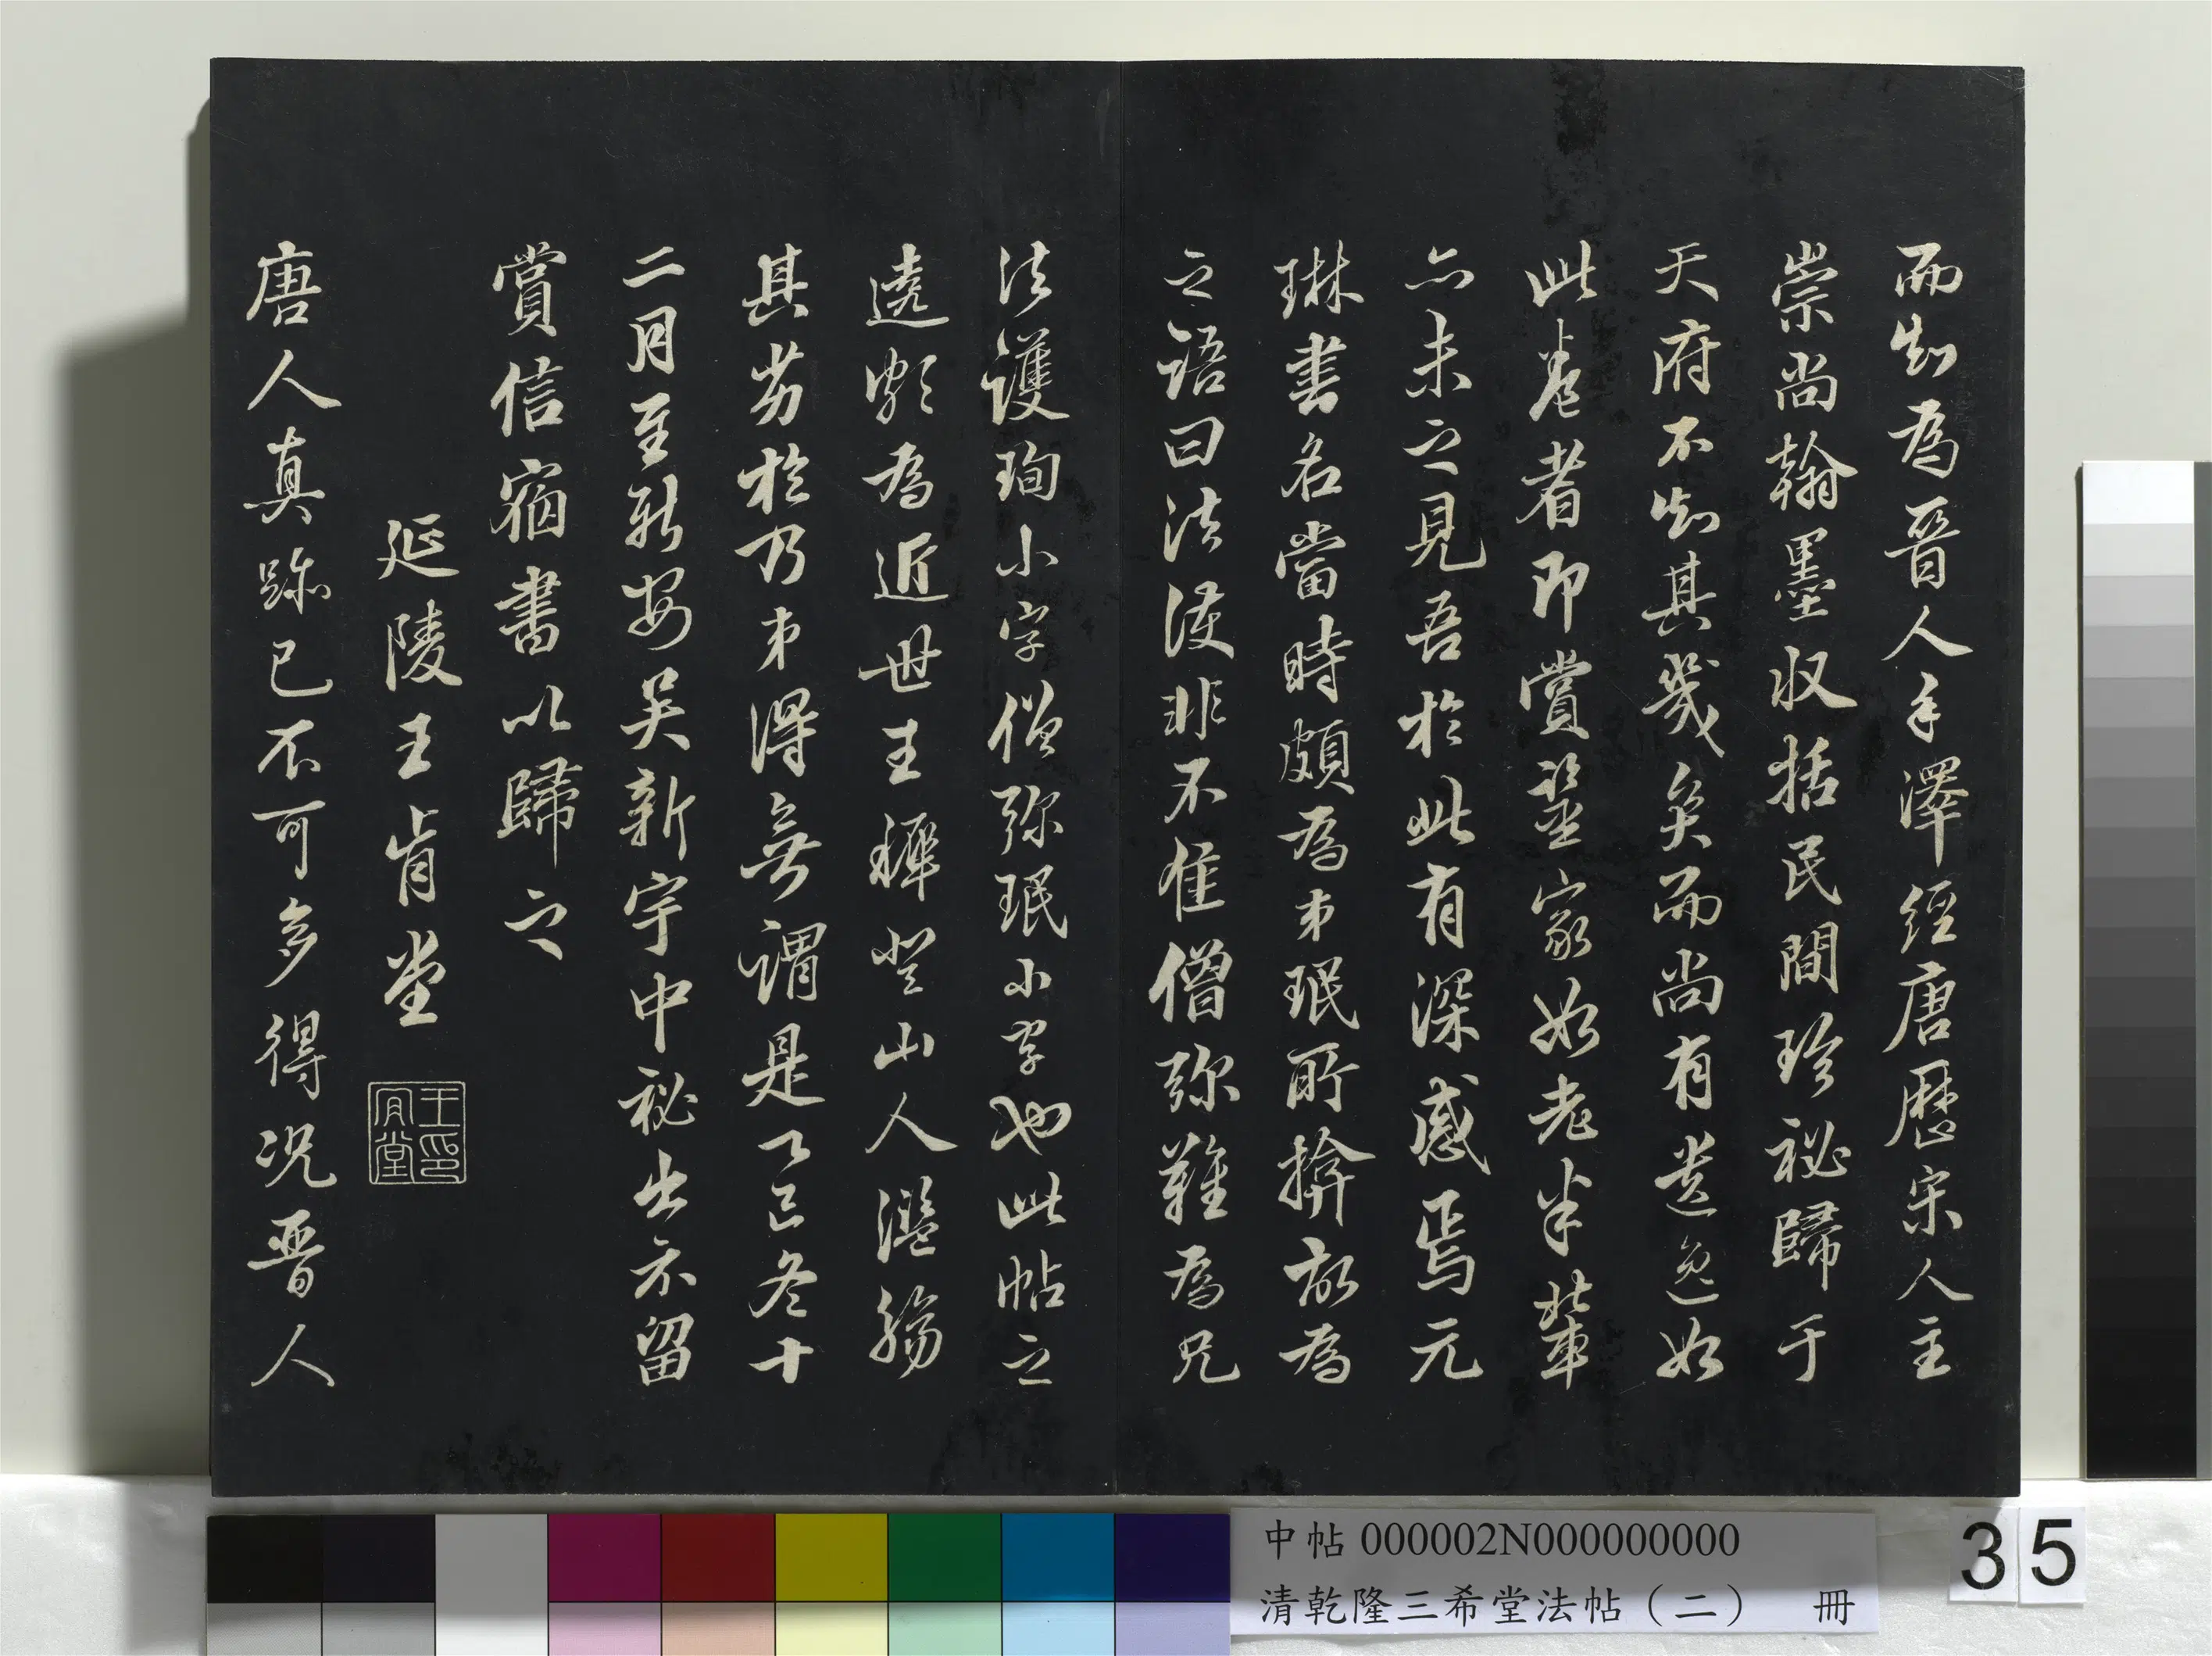 而知為晉人手澤經唐歷宋人主
崇尚翰墨収括民間珍祕歸于
天府不知其幾矣而尚有遺逸如
此卷者即賞鑒家如老米輩
亦未之見吾於此有深感焉元
琳書名當時頗為弟珉所揜故為
之語曰法護非不佳僧弥難為兄
法護珣小字僧弥珉小字也此帖之
遶媚為近世王穉登山人濫觴
其劣於乃弟得無謂是乙巳冬十
二月至新安吳新宇中祕出示留
賞信宿書以歸之
延陵王肯堂
王肯堂印
唐人真跡已不可多得況晉人
中帖 000002N000000000
清乾隆三希堂法帖（二） 冊
35